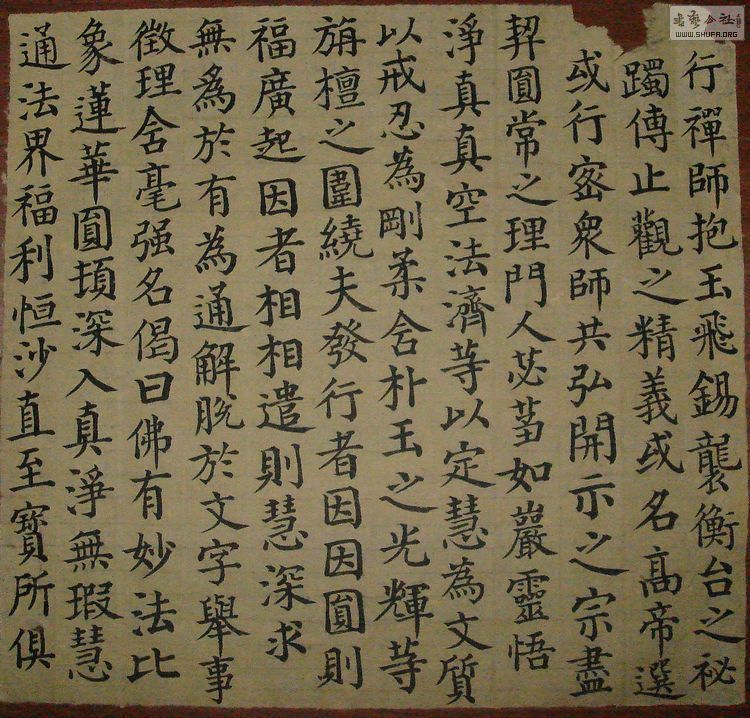 書藝公社
WWW.SHUFA.ORG
行禪師抱玉飛錫襲衡台之祕
躅傳止觀之精義或名高帝選
或行密衆師共弘開示之宗盡
契圓常之理門人苾蒭如巖靈悟
淨真真空法濟等以定慧為文質
以戒忍為剛柔含朴玉之光輝等
旃檀之圍繞夫發行者因因圓則
福廣起因者相相遣則慧深求
無爲於有為通解脫於文字舉事
徵理含毫强名偈曰佛有妙法比
象蓮華圓頓深入真淨無瑕慧
通法界福利恒沙直至寶所俱